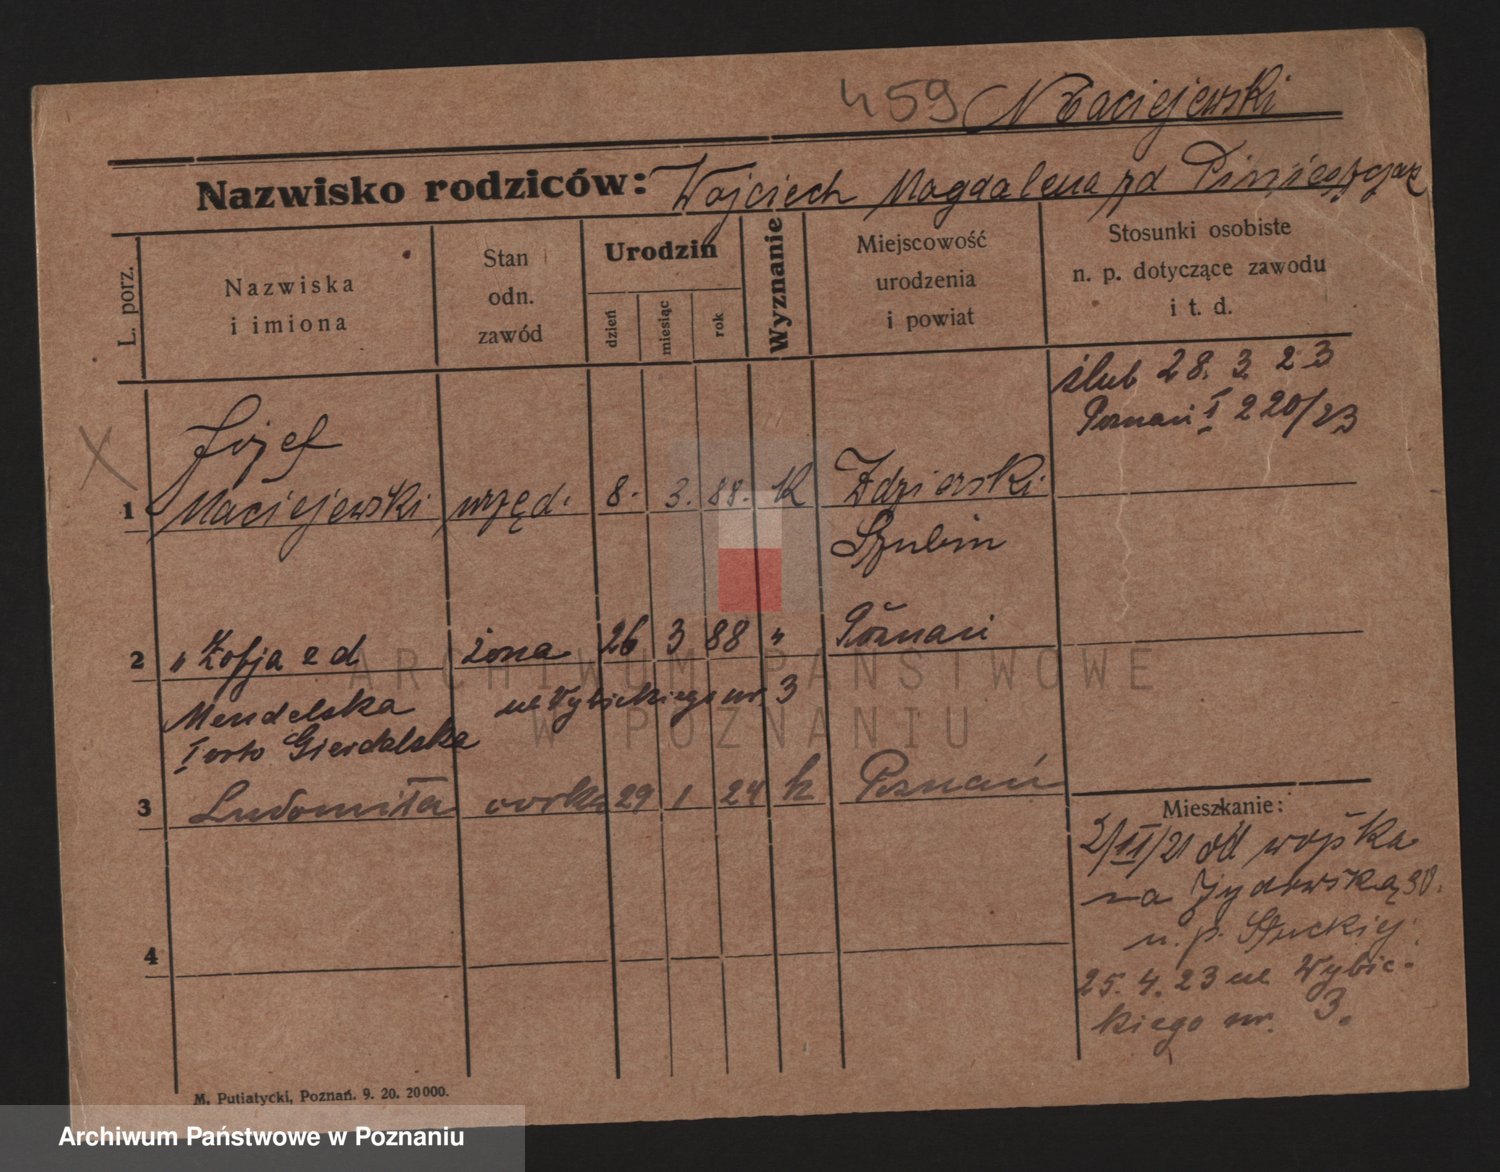 459 Maciejewski
Nazwisko rodziców: Wojciech Magdalena zd
L. porz.
Nazwiska i imiona
Stan odn. zawód
Urodzin
dzień
miesiąc
rok
Wyznanie
Miejscowość urodzenia i powiat
Stosunki osobiste n. p. dotyczące zawodu i t. d.
ślub 28. 3. 23
Poznań I 220/23
Józef
1 Maciejewski urzęd. 8. 3. 88. K
Szubin
2 " Zofja z d żona 26 3 88 " Poznań
Mendelska ul Wybickiego nr. 3
I voto
3 Ludomiła córka 29 1 24 k Poznań
Mieszkanie:
2/II/21 od wojska
na Żydowską 30.
u. p.
4
25. 4. 23 ul Wybic-
kiego nr. 3.
M. Putiatycki, Poznań. 9. 20. 20000.
ARCHIWUM PAŃSTWOWE
W POZNANIU
Archiwum Państwowe w Poznaniu